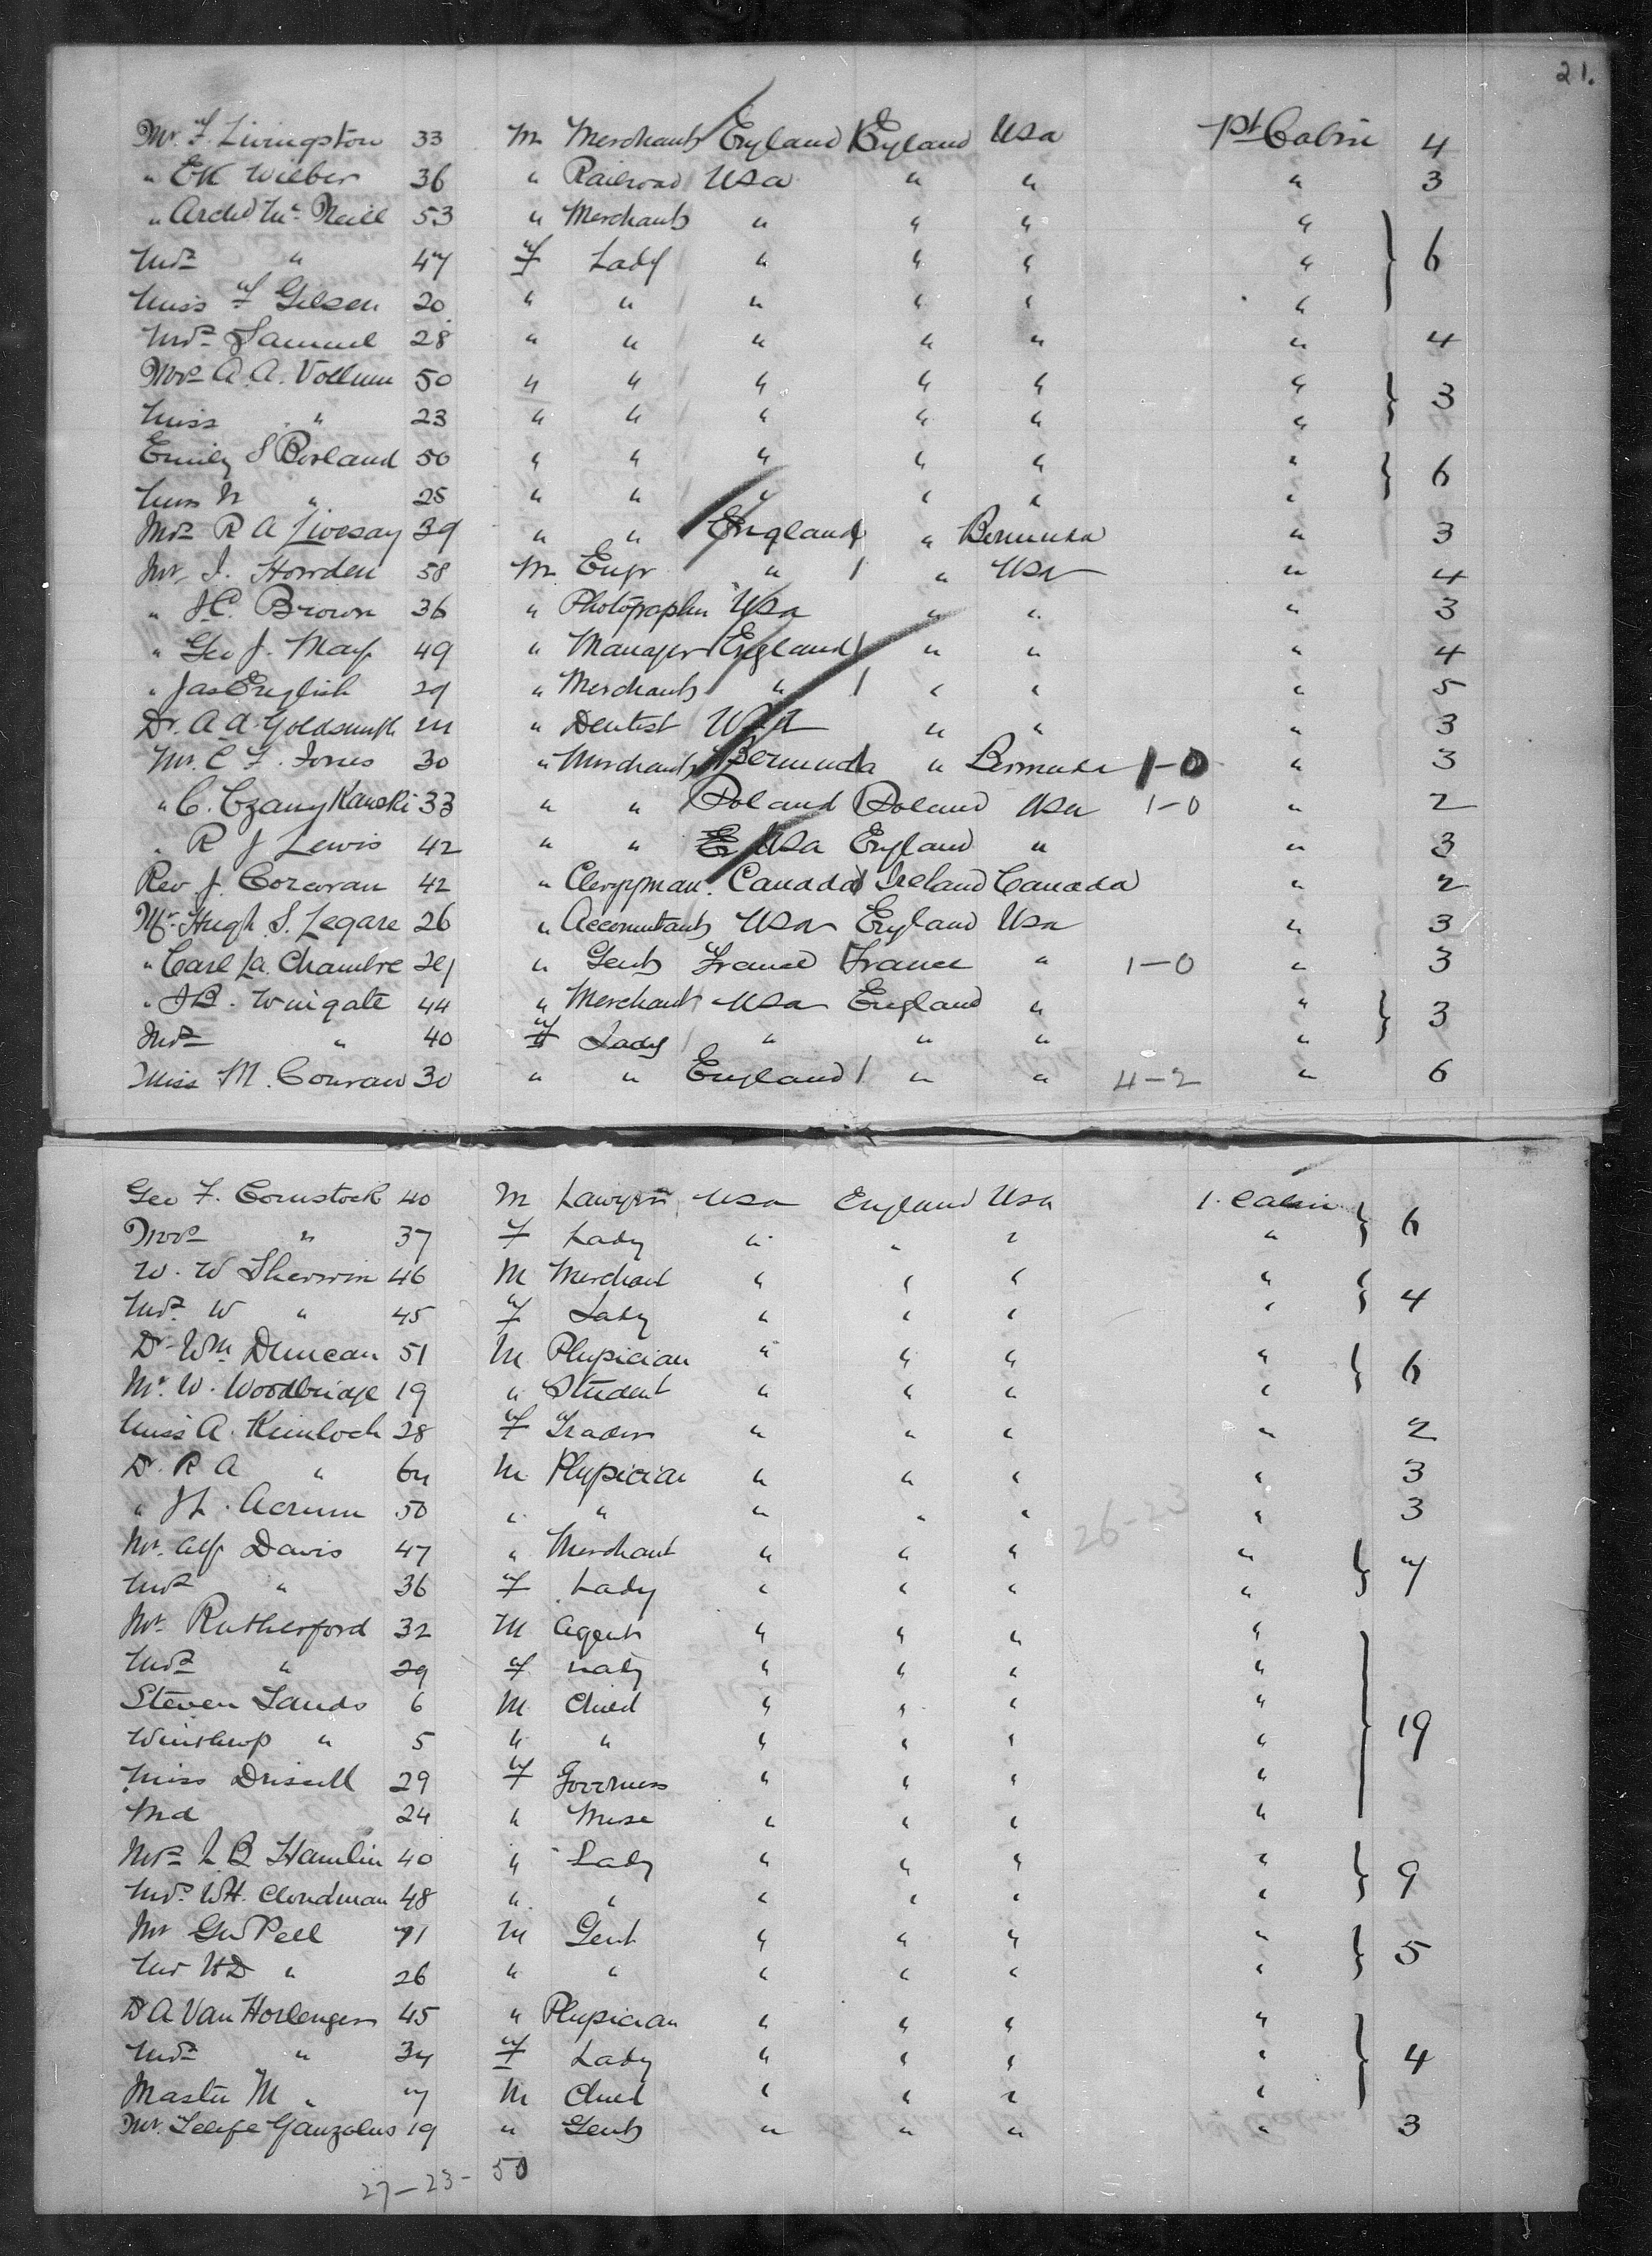 21.
Mr. F. Livingston 33 M Merchant England England USA 1st Cabin 4
" EK Wilber 36 " Railroad USA " " " 3
" Archd. Mc. Neill 53 " Merchant " " " "
Mrs " 47 F Lady " " " " 6
Miss F Gilsen 20 " " " " " "
Mrs Samuel 28 " " " " " " 4
Mrs A. A. Vollum 50 " " " " " " 3
Miss " 23 " " " " " "
Emily S Borland 50 " " " " " " 6
Miss N " 25 " " " " " "
Mrs R A Livesay 39 " " England " Bermuda " 3
Mr. J. Howden 58 M Engr " " USA " 4
" J.C. Brown 36 " Photographer USA " " " 3
" Geo J. May 49 " Manager England " " " 4
" Jas English 29 " Merchant " " " " 5
Dr. A. A. Goldsmith " Dentist USA " " " 3
Mr. C F. Jones 30 " Merchant Bermuda " Bermuda 1-0 " 3
" C. Czany Kanski 33 " " Poland Poland USA 1-0 " 2
" R J Lewis 42 " " E USA England " " 3
Rev J. Corcoran 42 " Clergyman. Canada Ireland Canada " 2
Mr. Hugh. S. Legare 26 " Accountant USA England USA " 3
" Carl La. Chambre 29 " Gent France France " 1-0 " 3
" J B. Wingate 44 " Merchant USA England " " 3
Mrs " 40 F Lady " " " "
Miss M. Conran 30 " " England " " 4-2 " 6
Geo F. Comstock 40 M Lawyer USA England USA 1. Cabin 6
Mrs " 37 F Lady " " " "
W. W Sherwin 46 M Merchant " " " " 4
Mrs. W " 45 F Lady " " " "
Dr. Wm Duncan 51 M Physician " " " " 6
Mr. W. Woodbridge 19 " Student " " " "
Miss A. Kinloch 28 F " " " " 2
Dr. R A " M Physician " " " " 3
" 50 " " " " " 26-23 " 3
Mr. Alf Davis 47 " Merchant " " " " 7
Mrs " 36 F Lady " " " "
Mr. Rutherford 32 M Agent " " " "
Mrs " 29 F Lady " " " "
Steven Sands 6 M Child " " " " 19
Winthrop " 5 " " " " " "
Miss Driscll 29 F Governess " " " "
Md 24 " Nurse " " " "
Mrs L B Hamlin 40 " Lady " " " " 9
Mrs. WH. Cloudman 48 " " " " " "
Mr Geo Pell 71 M Gent " " " " 5
Mr HD " 26 " " " " " "
Dr A Van Horlengen 45 " Physician " " " "
Mrs " 34 F Lady " " " " 4
Master M " 7 M Child " " " "
Mr. Felipe Ganzolus 19 " Gent " " " " 3
27-23- 50